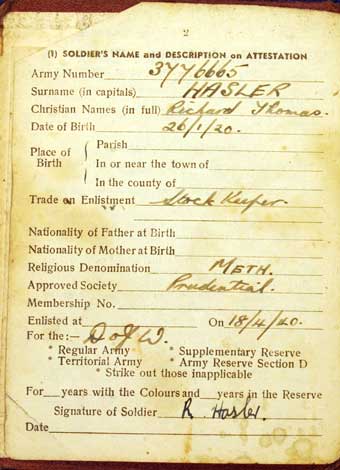 2
(1) SOLDIER'S NAME and DESCRIPTION on ATTESTATION
Army Number 3776665
Surname (in capitals) HASLER
Christian Names (in full) Richard Thomas.
Date of Birth 26/1/20.
Place of Birth
Parish
In or near the town of
In the county of
Trade on Enlistment Stock Keeper.
Nationality of Father at Birth
Nationality of Mother at Birth
Religious Denomination METH.
Approved Society Prudential.
Membership No.
Enlisted at On 18/4/40.
For the:— D of W.
* Regular Army * Supplementary Reserve
* Territorial Army * Army Reserve Section D
* Strike out those inapplicable
For years with the Colours and years in the Reserve
Signature of Soldier R Hasler.
Date